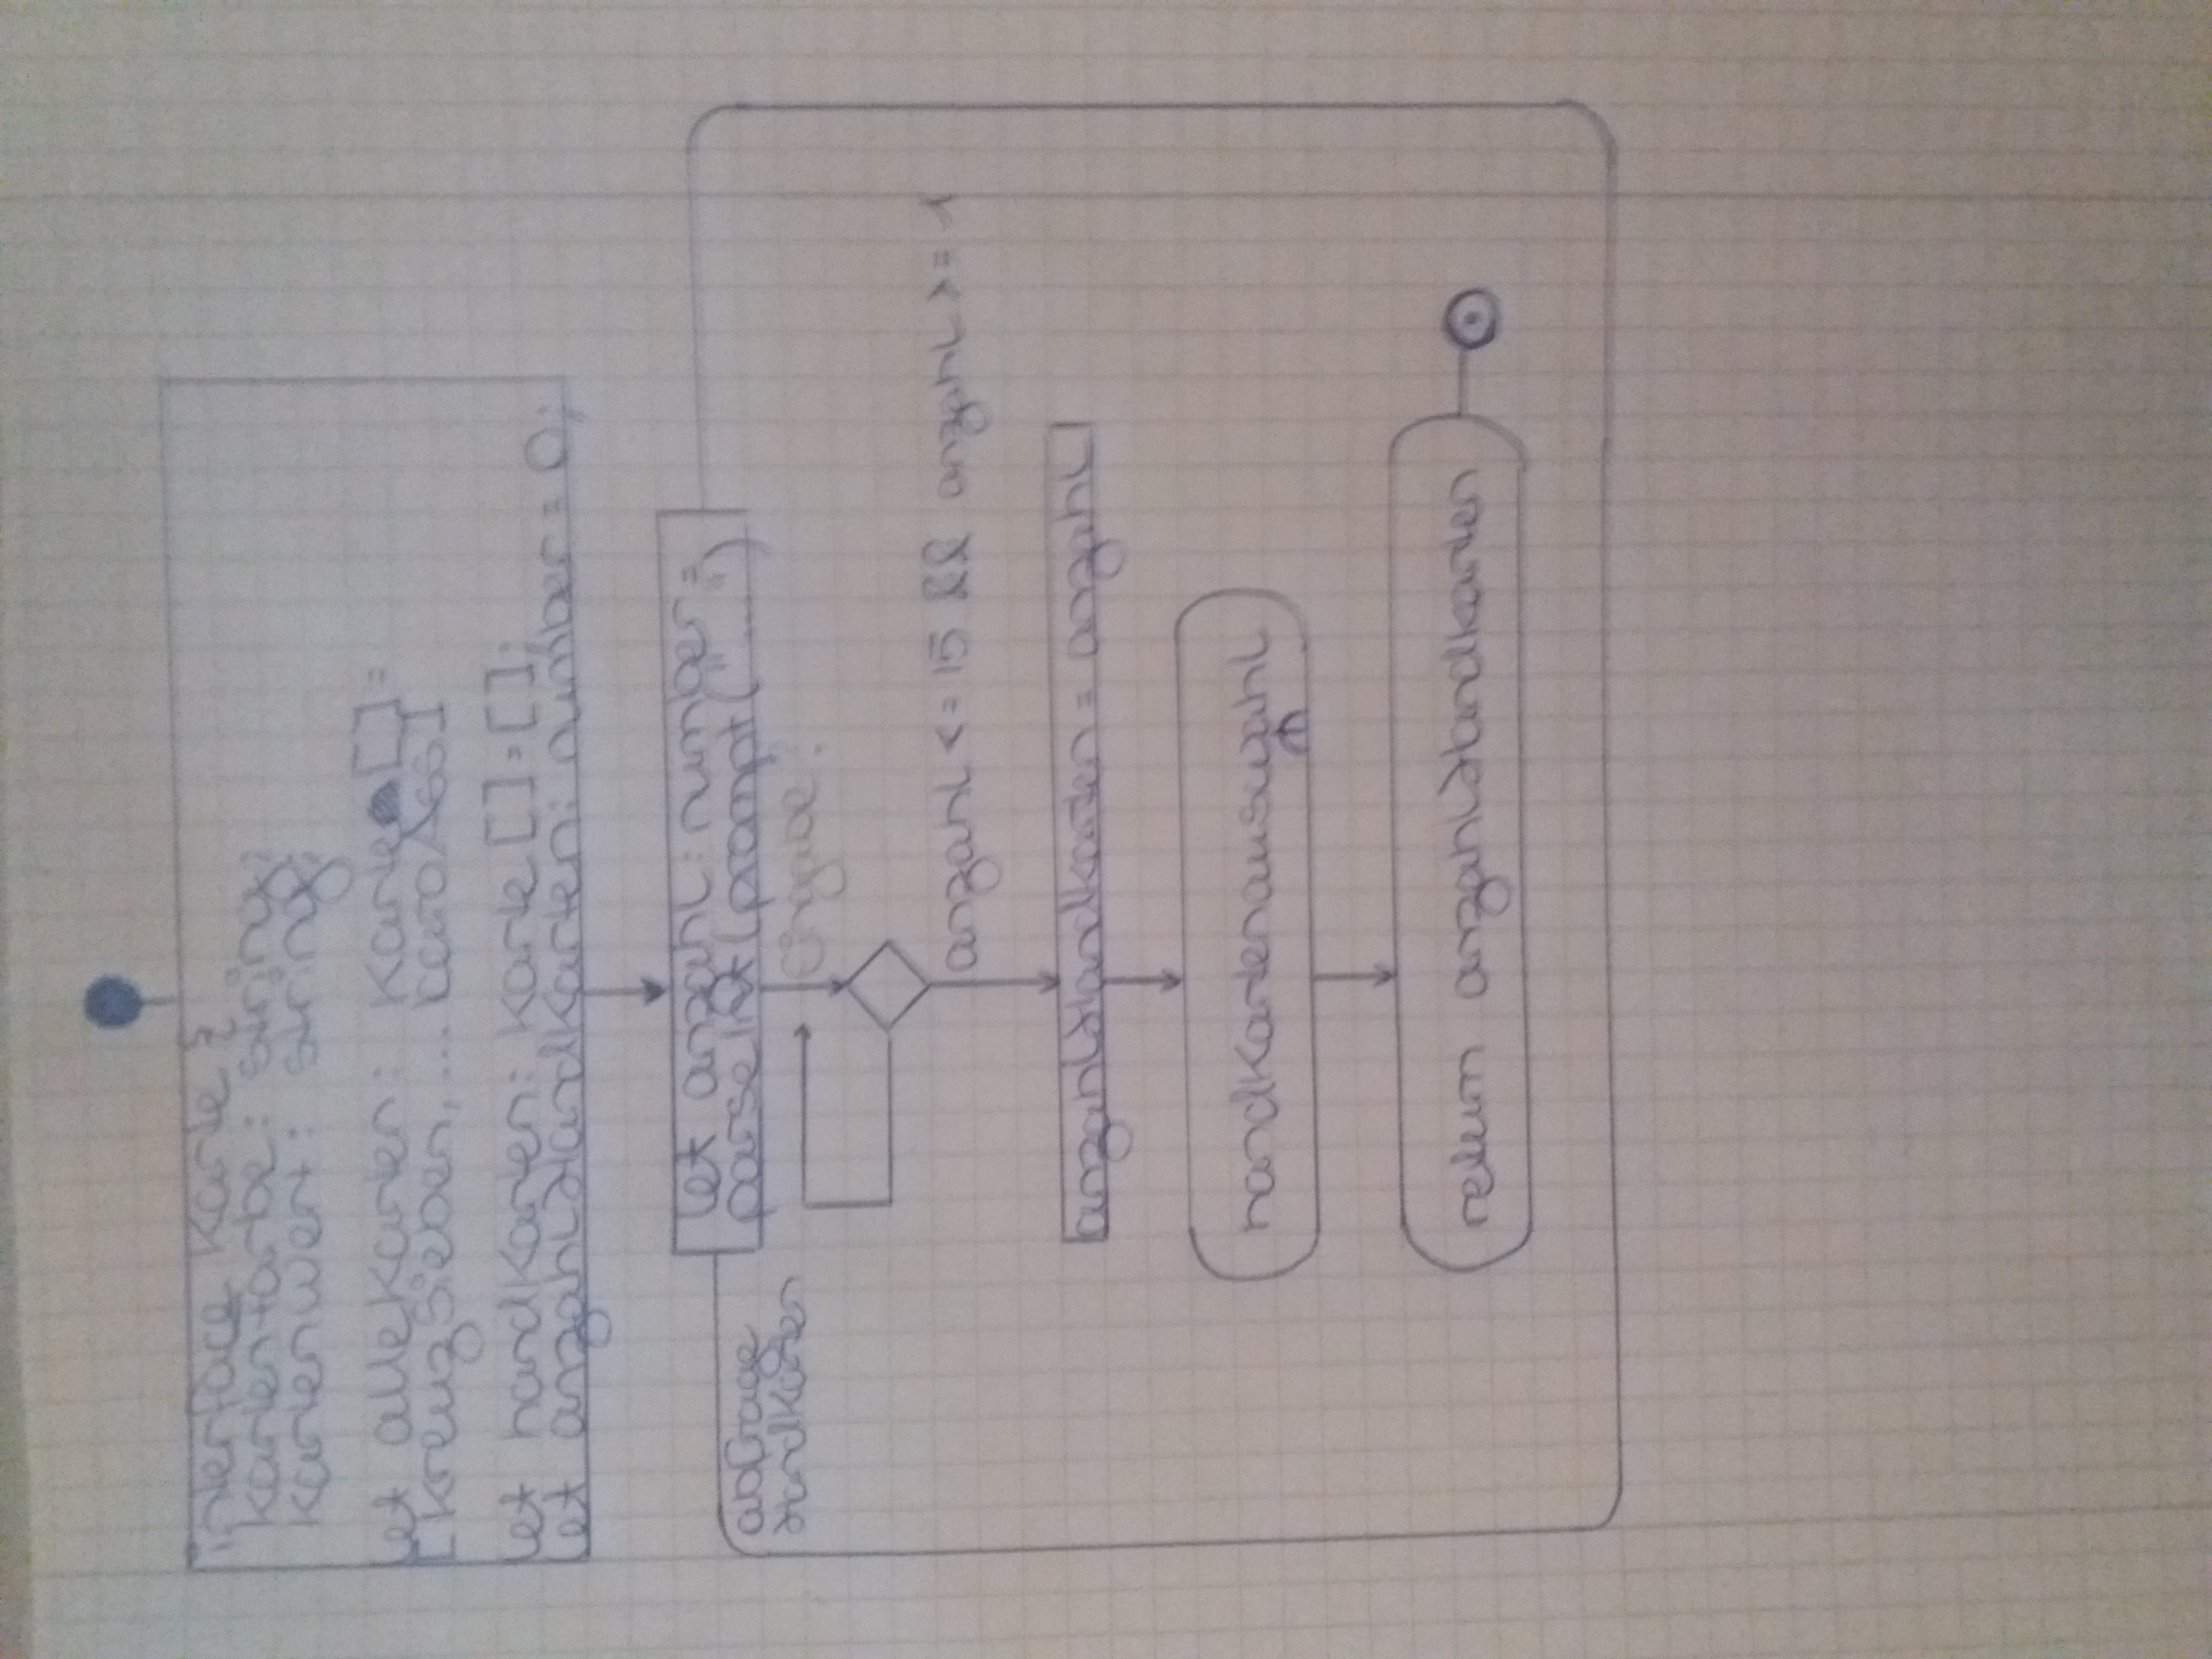 interface Karte {
kartenfarbe: string;
kartenwert: string;
let alleKarten: Karte[] =
[kreuzSieben, ... karoAss]
let handKarten: Karte [] = [];
let anzahlHandKarten: number = 0;
let anzahl: number =
parseInt(prompt("...")
abfrage
HandKarten
Eingabe:
anzahl <= 15 && anzahl >= 1
anzahlHandkarten = anzahl
handKartenauswahl
return anzahlHandkarten